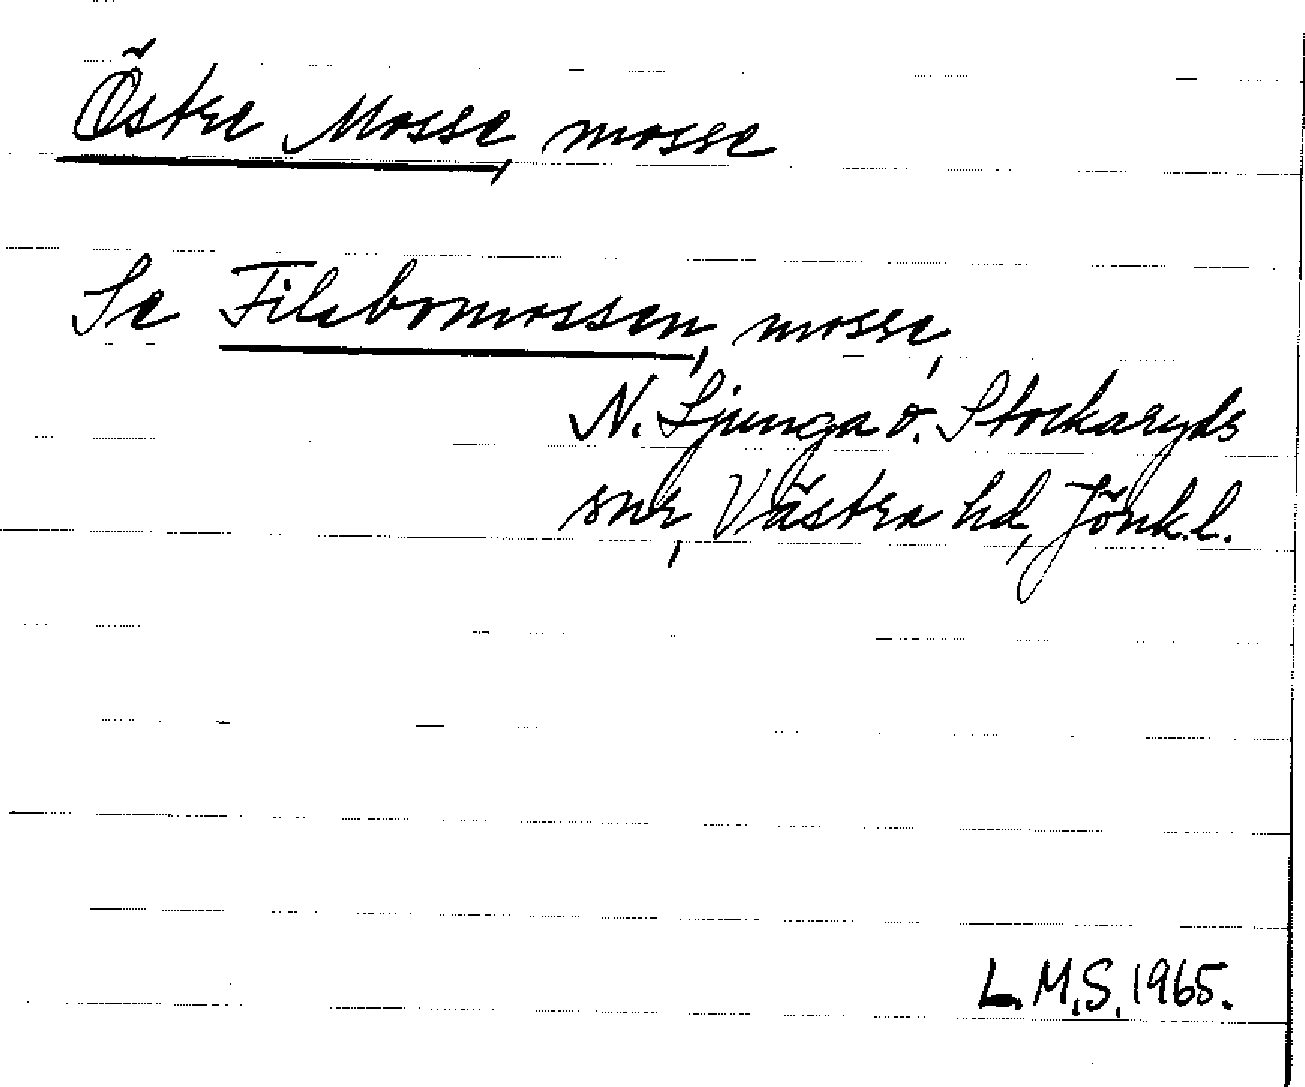 Östre Mosse, mosse
Se Filebomossen, mosse,
N. Ljunga o. Stockaryds
snr, Västra hd, Jönk.l.
L.M.S. 1965.